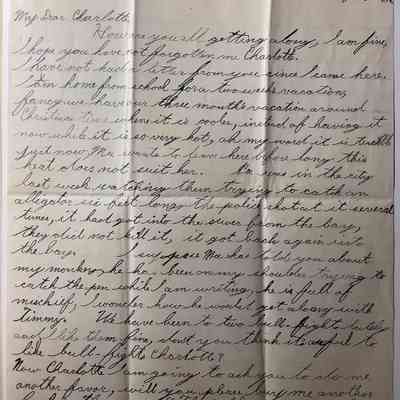 My Dear Charlotte.
How are you all getting along, I am fine,
I hope you have not forgotten me Charlotte.
I have not had a letter from you since I came here.
I am home from school for a two weeks vacation,
fancy we have our three months vacation around
Christmas time where it is cooler, instead of having it
now while it is so very hot, oh my word, it is terrible
just now. Ma wants to leave here before long this
heat does not suit her. I was in the city
last week watching them trying to catch an
alligator six feet long, the police shot at it several
times, it had got into the sewer from the bay,
they did not kill it, it got back again into
the bay. I suppose Ma has told you about
my monkey, he has been on my shoulder trying to
catch the pen while I am writing, he is full of
mischief, I wonder how he would get along with
Timmy. We have been to two bull-fights lately
and like them fine, dont you think it awful to
like bull-fights Charlotte?
Now Charlotte I am going to ask you to do me
another favor, will you please buy me another